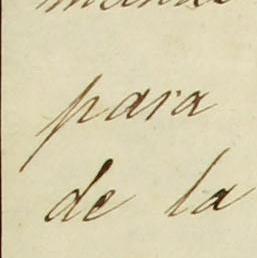 para
de la